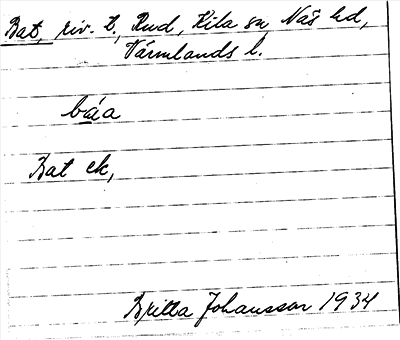 Bat, riv. t., Rud, Kila sn Näs hd,
Värmlands l.
báa
Bat ek,
Britta Johansson 1934